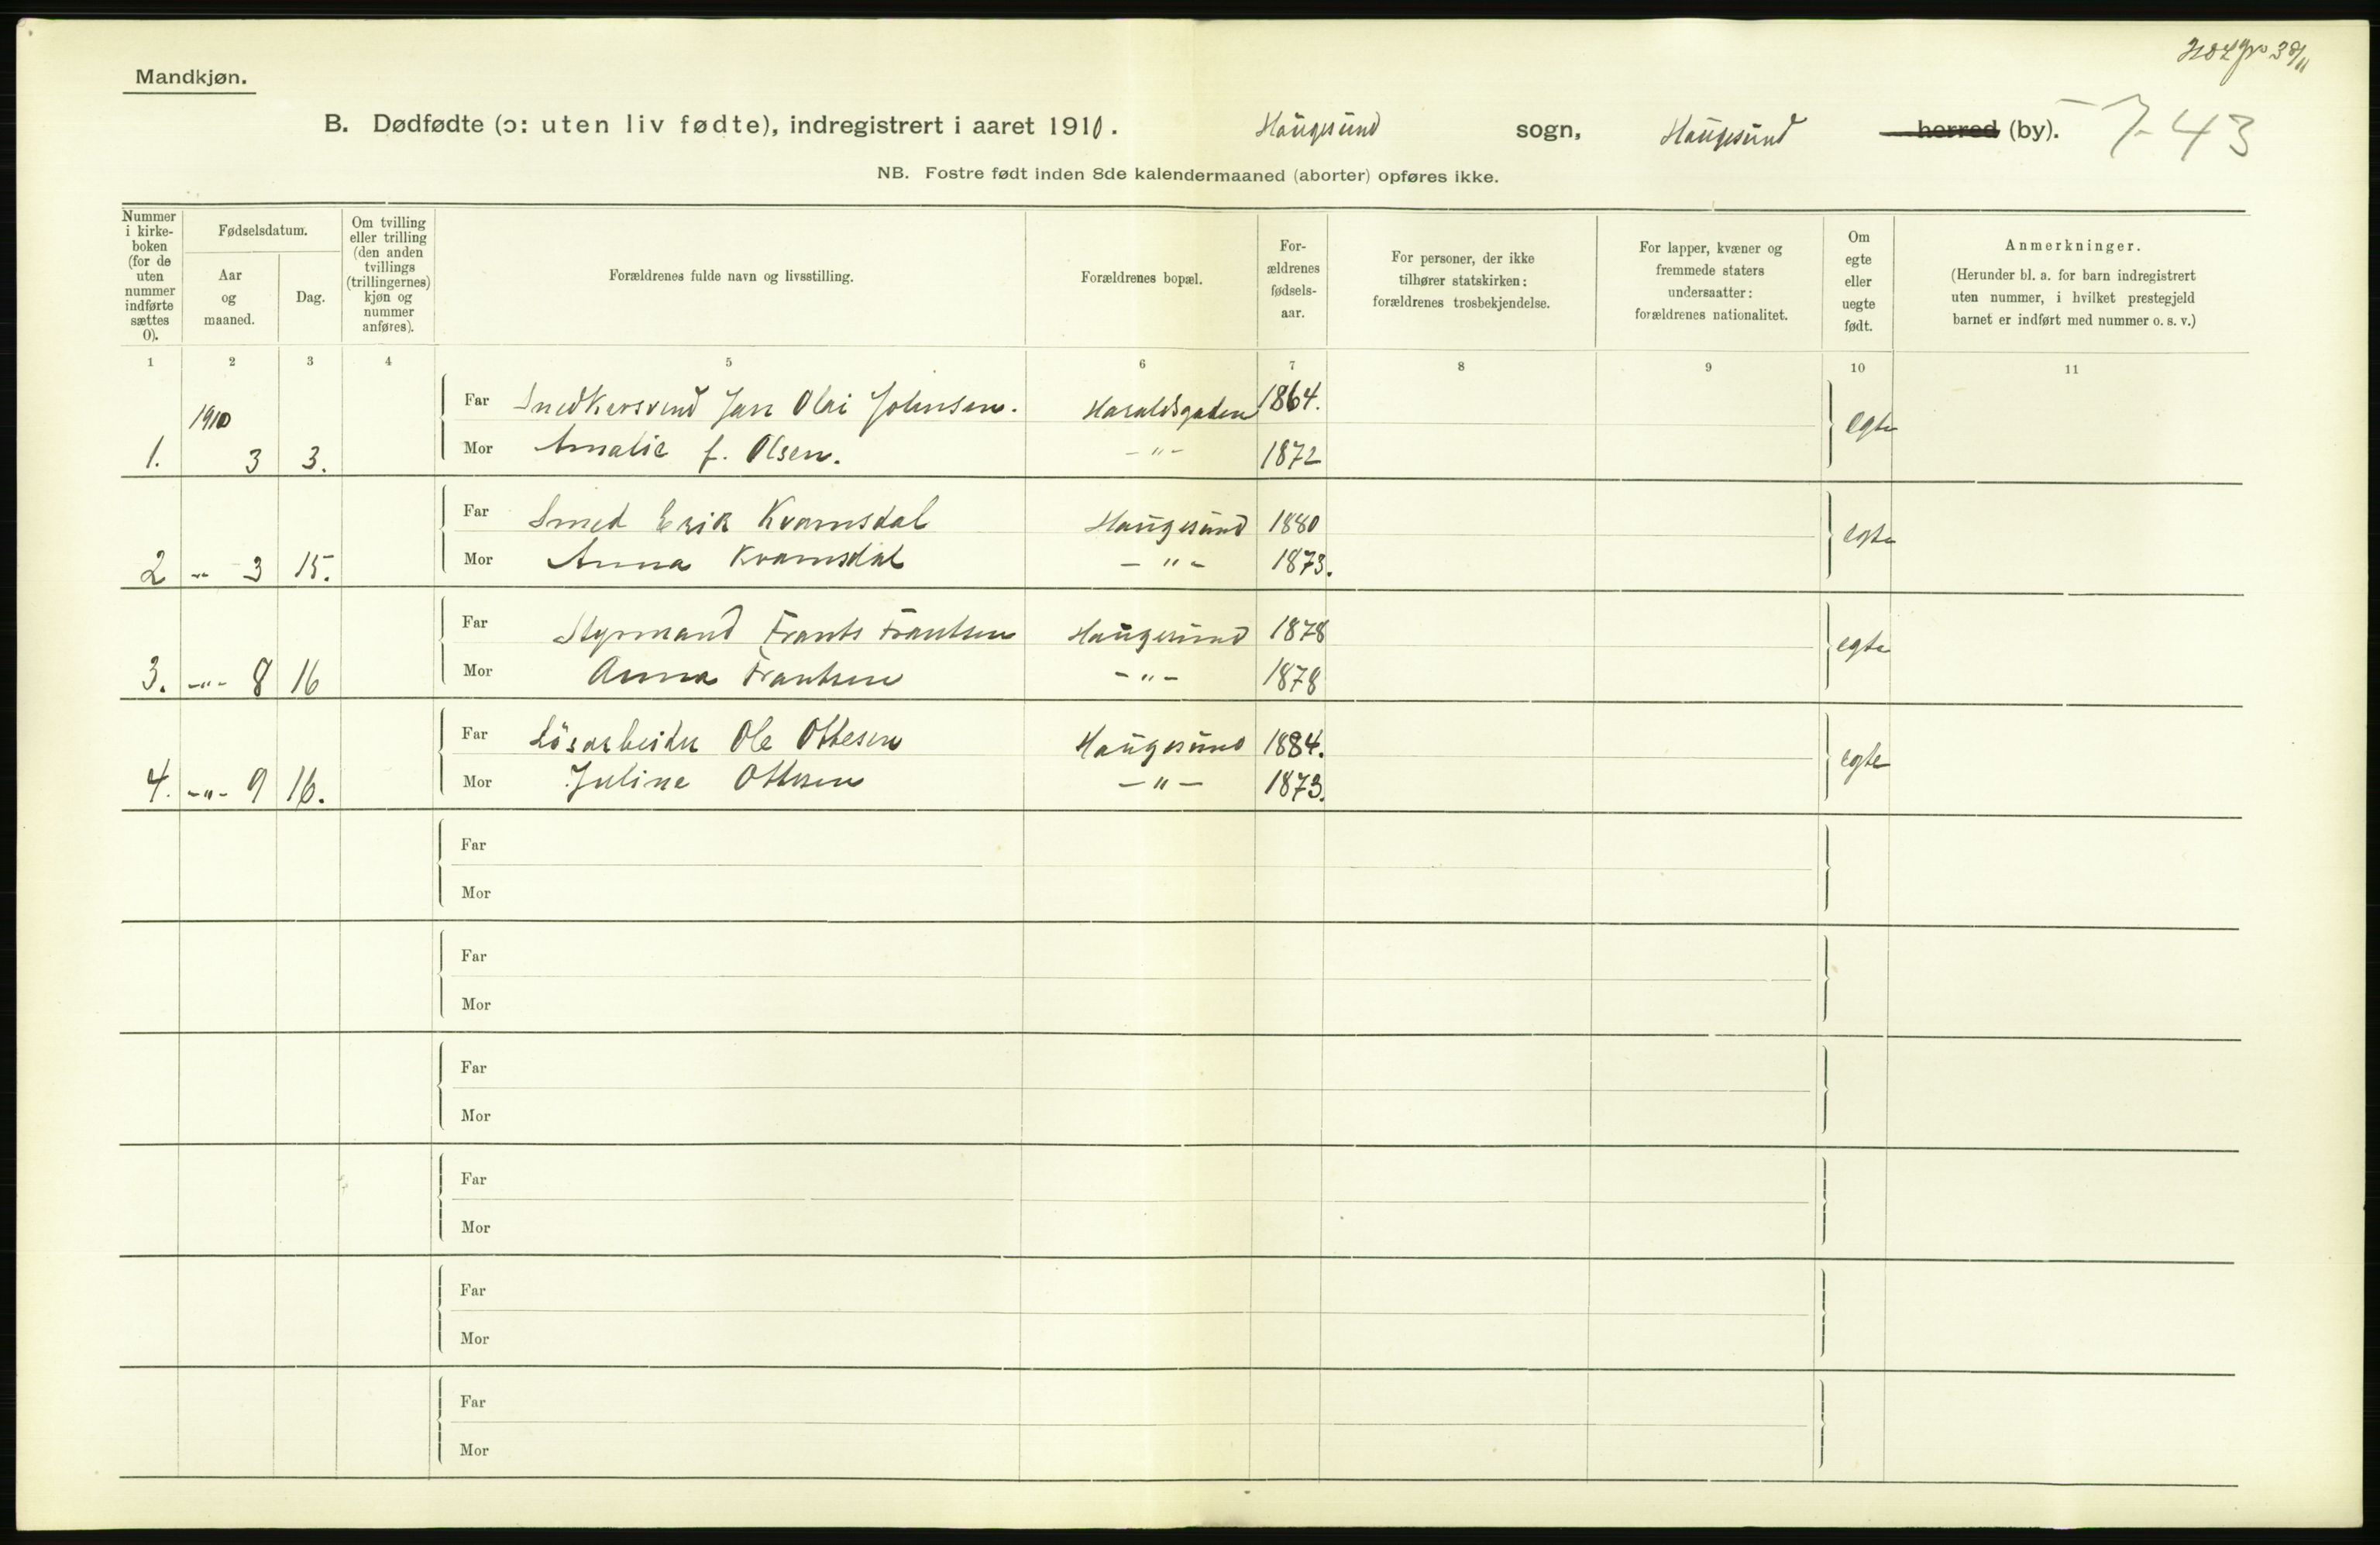 Mandkjøn.
B. Dødfødte (ɔ: uten liv fødte), indregistrert i aaret 1910. Haugesund sogn, Haugesund herred (by). 7-43
NB. Fostre født inden 8de kalendermaaned (aborter) opføres ikke.
Nummer i kirke-boken (for de uten nummer indførte sættes 0).
Fødselsdatum.
Aar og maaned.
Dag.
Om tvilling eller trilling (den anden tvillings (trillingernes) kjøn og nummer anføres).
Forældrenes fulde navn og livsstilling.
Forældrenes bopæl.
For-ældrenes fødsels-aar.
For personer, der ikke tilhører statskirken: forældrenes trosbekjendelse.
For lapper, kvæner og fremmede staters undersaatter: forældrenes nationalitet.
Om egte eller uegte født.
Anmerkninger.
(Herunder bl. a. for barn indregistrert uten nummer, i hvilket prestegjeld barnet er indført med nummer o. s. v.)
1 2 3 4 5 6 7 8 9 10 11
1910
Far Snedkersvend Jan Olai Johnsen. Haraldsgaden 1864. egte
1. 3 3. Mor Amalie f. Olsen. -"- 1872
Far Smed Erik Kvamsdal Haugesund 1880 egte
2 -"- 3 15. Mor Anna Kvamsdal -"- 1873.
Far Styrmand Frants Frantsen Haugesund 1878 egte
3. -"- 8 16 Mor Anna Frantsen -"- 1878
Far Lösarbeider Ole Ottesen Haugesund 1884. egte
4. -"- 9 16. Mor Juline Ottesen -"- 1873.
Far
Mor
Far
Mor
Far
Mor
Far
Mor
Far
Mor
Far
Mor